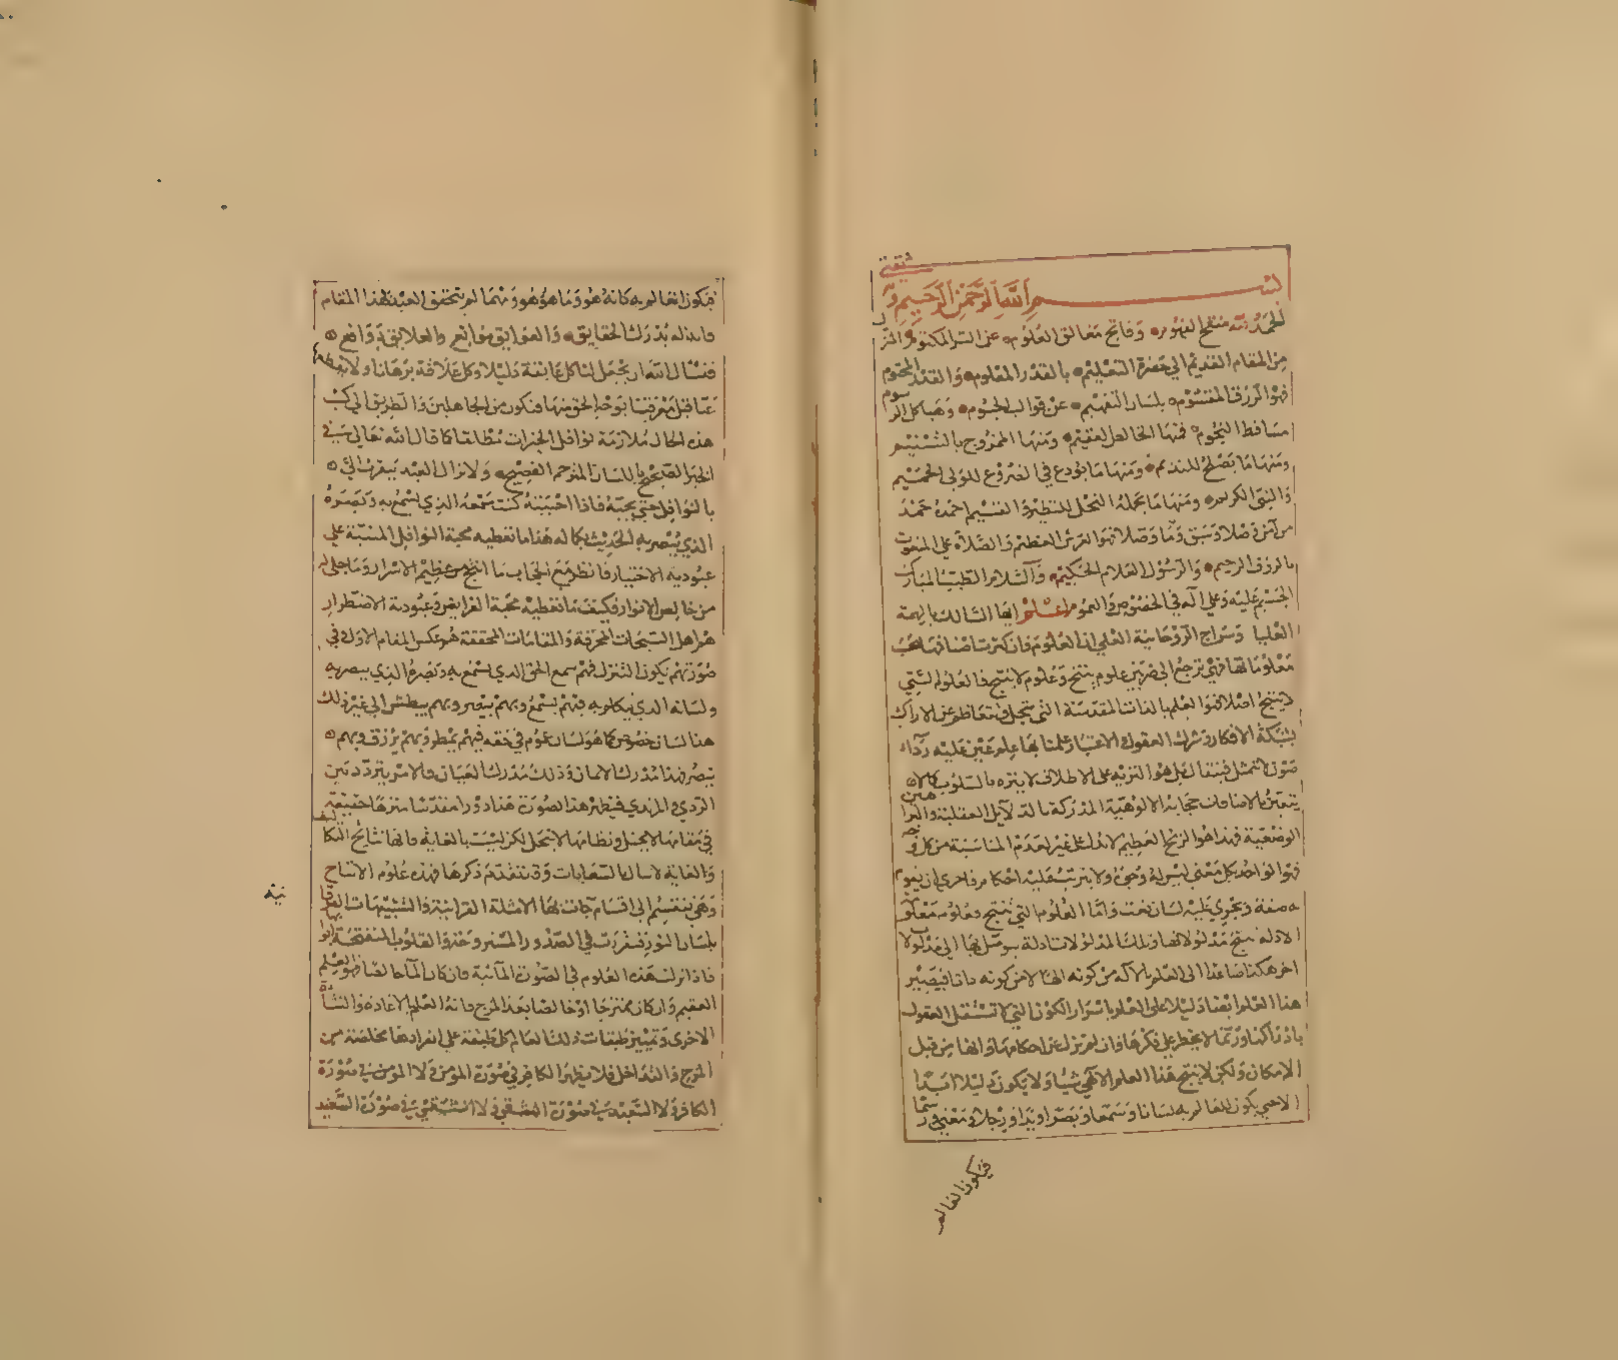 ثقتي
بسم الله الرحمن الرحيم وبه
الحمد لله منتج الفهوم وفاتح مغالق العلوم عن السر المكتوم المنزل
من المقام القديم الي حضرة التعليم بالقدر المعلوم والقدر المحتوم
فهو الرزق المقسوم بلسان التفهيم عن قوالب الجسوم وهياكل الرسوم
مساقط النجوم فمنها الخالص العقيم ومنها الممزوج بالتسنيم
ومنها ما يصلح للنديم ومنها ما يودع في الضروع للولي الحميم
والنبي الكريم ومنها ما عمله النحل للتطهير والتقسيم احمده حمد
من آمن وصلا وسبق وما وصلا فهو العرش العظيم والصلاة علي المنعوت
بالرؤف الرحيم والرسول العلام الحكيم والسلام الطيب المبارك
الجسيم عليه وعلي آله في الخصوص والعموم اعلم ايها السالك بالهمة
العليا وسراج الروحانية العلي ان العلوم وان كثرت اصنافها بحسب
معلوماتها فهي ترجع الي ضربين علوم تنتج وعلوم لا تنتج فالعلوم التي
لا تنتج اصلا فهو العلم بالذات المقدسة التي تتجل وتتعاظم عن الادراك
بشبكة الافكار وشرك العقول والاعتبار علمنا بها علم عين عليه رداء
صون لا تتمثل فينتقال بل هو التنزيه علي الاطلاق لا يتنزه بالسلوب كما لا
يتعين بالاضافات حجابه الالوهية المدركة بالدلايل العقلية والبراهين
الوضعية فهذا هو الريح العظيم لا تدل علي غير لعدم المناسبة من كل وجه
فهو الواحد بكل معني ليس له وجوه ولا يترتب عليه احكام فاحري ان يقوم
به صفة ويجري عليه لسان نعت واما العلوم التي تنتج فعلوم معلولات
الادلة ينتج مدلولاتها وتلك المدلولات ادلة يوصل بها الي مدلول
اخر هكذا صاعدا الي العلم بالاله من كونه الها لا من كونه ذاتا فيصير
هذا العلم ايضا دليلا علي العلم باسرار الكون التي لا تستقل العقول
بادراكها وربما لا يخطر علي فكرها وان لم يزل عن احكامها وانها من قبل
الامكان ولكن لا ينتج هذا العلم الالهي شيا ولا يكون دليلا ابدا
الا حتي يكون للعالم به لسانا وسمعا وبصرا ويدا ورجلا ومعني ورسما
فيكون العالم
فيكون العالم به كانه هو وما هو هو ومهما لم يتحقق العبد بهذا المقام
فانه لم يدرك الحقايق والعوايق موانع والعلايق دوافع
فنسال الله ان يجعل لنا كل عايقة دليلا وكل علاقة برهانا ولا يقطعنا
عما قبل معرفتنا بوجه الحق منها فنكون من الجاهلين والطريق الي كسب
هذه الحال ملازمة نوافل الخيرات مطلقا كما قال الله تعالي في
الخبر الصحيح باللسان المترجم الفصيح ولا يزال العبد يتقرب الي
بالنوافل حتي يحبه فاذا احببته كنت سمعه الذي يسمع به وبصره
الذي يبصر به الحديث بكماله هذا ما تعطيه محبة النوافل المنبئة علي
عبودية الاختيار فانظر مع الحجاب ما انتج من عظيم الاسرار وما جلي له
من خالص الانوار فكيف ما تعطيه محبة الفرايض وعبودية الاضطرار
هو اهل السبحات المحرقة والمقامات المحققة هو عكس المقام الاول وفي
صورتهم يكون التنزل فهم سمع الحق الذي يسمع به وبصره الذي يبصر به
ولسانه الذي يتكلم به فبهم يسمع وبهم يبصر وبهم يبطش الي غير ذلك
هذا لسان خصوص كما هو لسان عموم في حقه فبهم يمطر وبهم يرزق وبهم
ينصر فهذا مدرك الايمان وذلك مدرك العيان والامر يتردد بين
الردي والهدي فيظهر هذا الصورة هنا دورا مقدسا منزها حقيقة
في مقامها لا يختل ونظامها لا ينحل لكن ليست بالغاية فانها نتايج التكليف
والغاية لاسبال السحابات وقد تقدم ذكرها فهذه علوم الانتاج
وهي تنقسم الي اقسام جاءت لها الامثلة القرانية والتشبيهات الفرقانية
بلسان النور فقررت في الصدور المشروحة والقلوب المنفتحة ابوابها
فاذا نزلت هذه العلوم في الصورة المائية فان كان الماء خالصا فهو العلم
العقيم وان كان ممتزجا او خالصا بعد المزج فانه العلم بالاعادة والنشأة
الاخري وتمييز طبقات ذلك العالم كل طبقة علي انفرادها مخلصة من
المزج والتداخل فلا يظهر الكافر في صورة المومن ولا المومن في صورة
الكافر ولا السعيد في صورة الشقي ولا الشقي في صورة السعيد